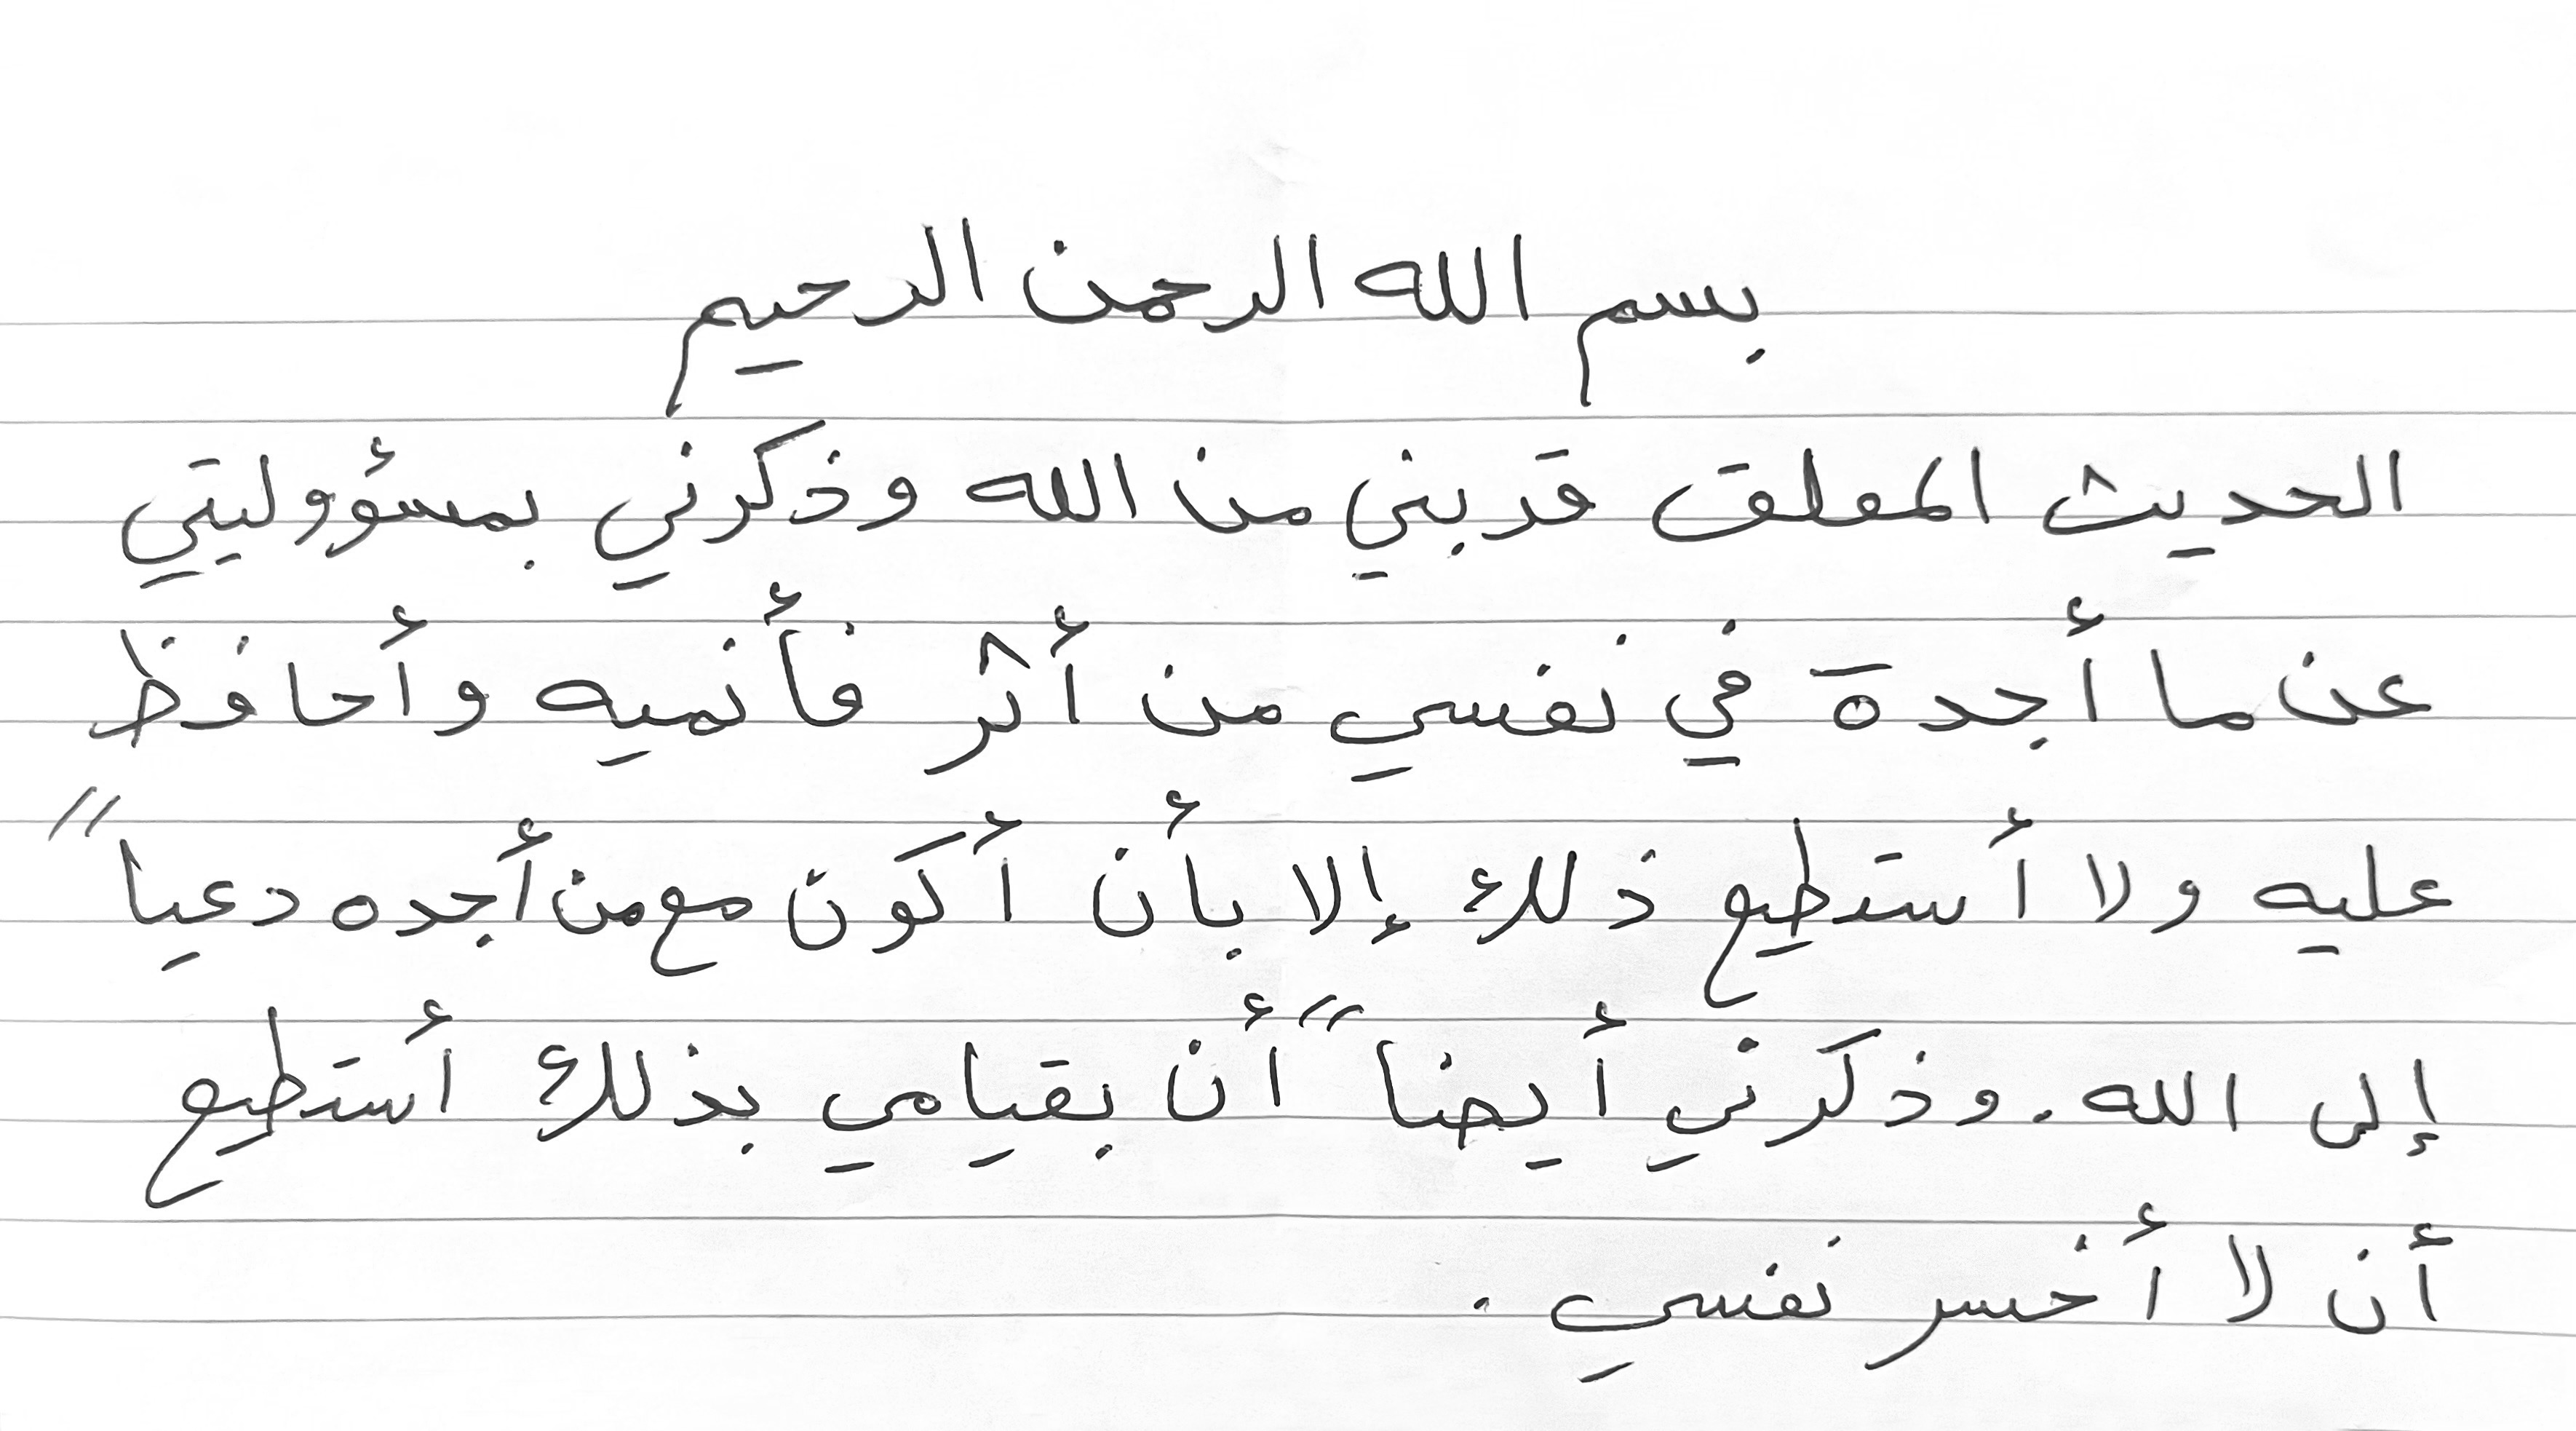 بسم الله الرحمن الرحيم
الحديث المعلق قربني من الله وذكرني بمسؤوليتي
عن ما أجدة في نفسي من أثر فأنميه وأحافظ
عليه ولا أستطيع ذلك إلا بأن أكون مع من أجده دعياً
إلى الله. وذكرني أيضاً أن بقيامي بذلك أستطيع
أن لا أخسر نفسي .